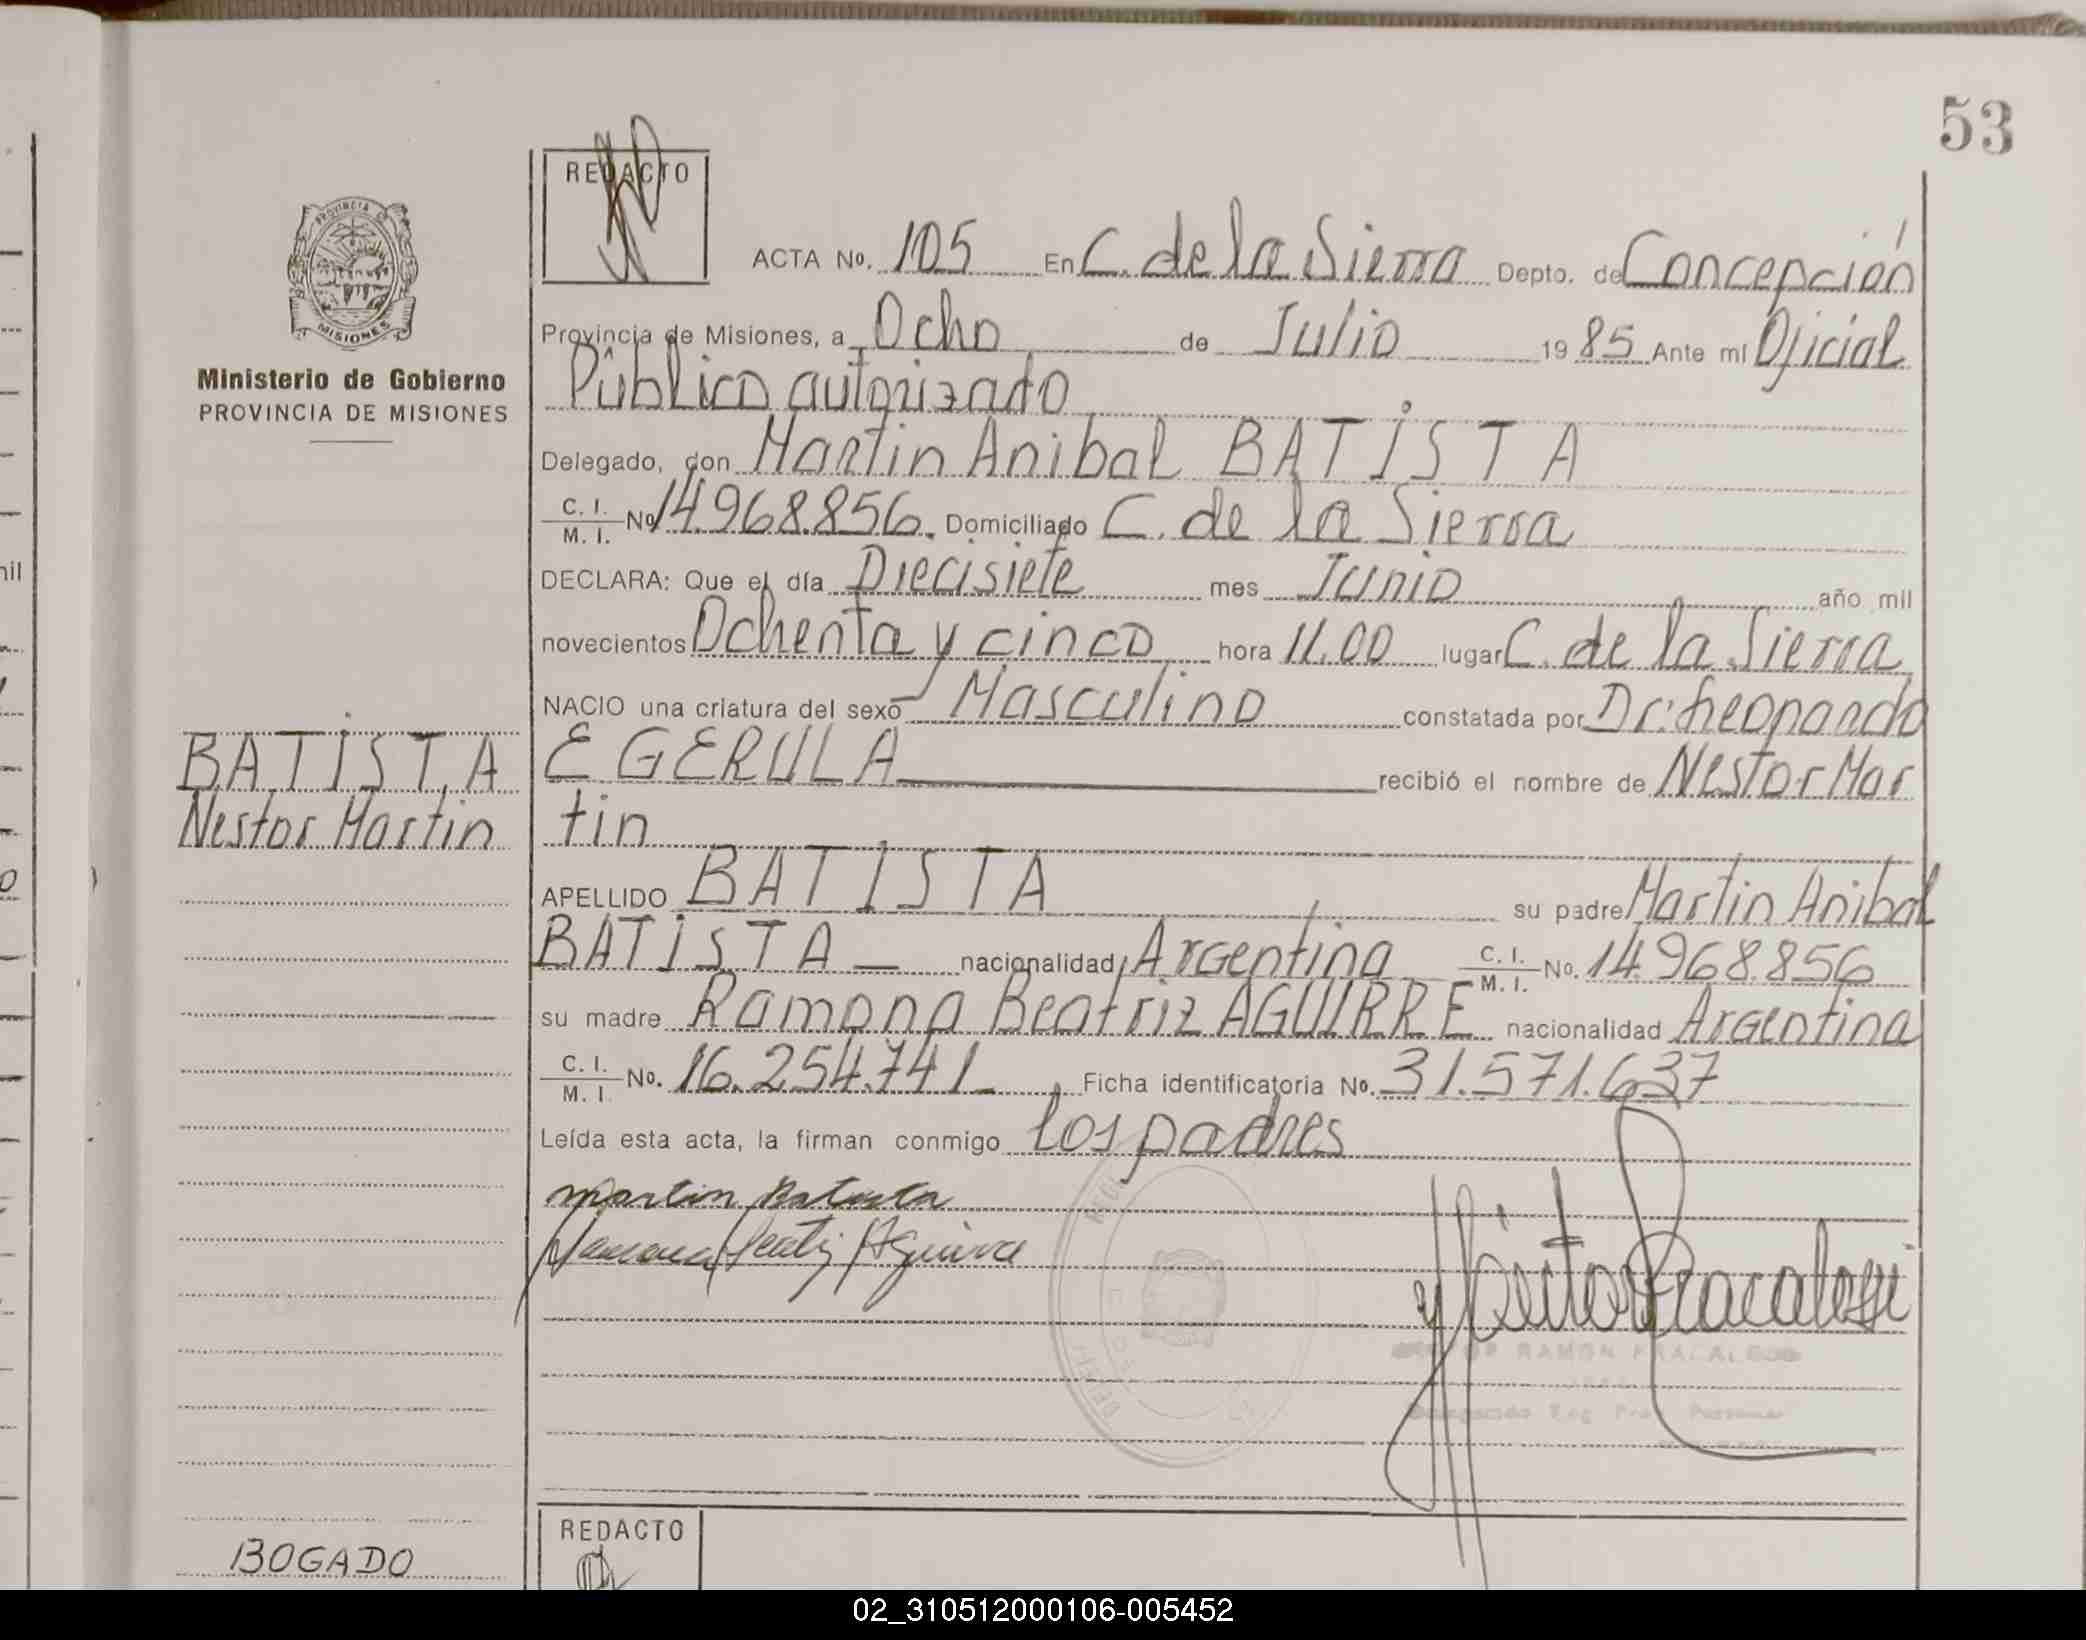 53
REDACTO
ACTA No. 105 En C. de la Sierra Depto. de Concepción
PROVINCIA DE
MISIONES
Provincia de Misiones, a Ocho de Julio 1985 Ante mí Oficial
Público autorizado
Ministerio de Gobierno
PROVINCIA DE MISIONES
Delegado, don Martin Anibal BATISTA
C. I. M. I. No 14.968.856. Domiciliado C. de la Sierra
DECLARA: Que el día Diecisiete mes Junio año mil
novecientos Ochenta y cinco hora 11.00 lugar C. de la Sierra
NACIO una criatura del sexo Masculino constatada por Dr. Leonardo
BATISTA
Nestor Martin
E GERULA recibió el nombre de Nestor Mar
tin
APELLIDO BATISTA su padre Martin Anibal
BATISTA nacionalidad Argentina C. I. M. I. No. 14.968.856
su madre Ramona Beatriz AGUIRRE nacionalidad Argentina
C. I. M. I. No. 16.254.741 Ficha identificatoria No. 31.571.637
Leída esta acta, la firman conmigo los padres
Martin Batista
Ramona Beatriz Aguirre
RAMON FRACALOSSI
Delegado Reg. Prov. Personas
REDACTO
BOGADO
nil
02_310512000106-005452